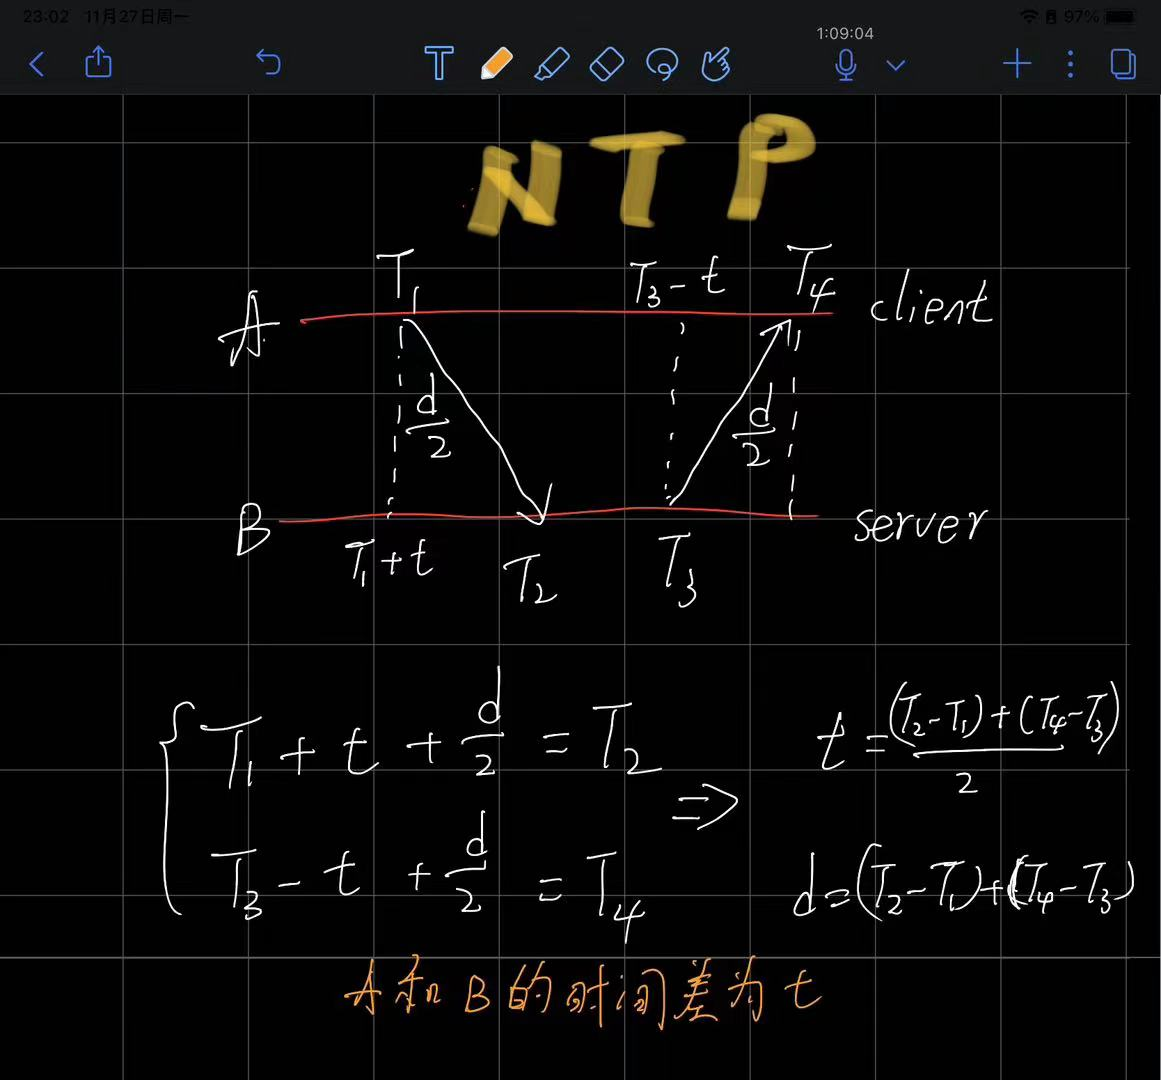 23:02 11月27日周一
97%
1:09:04
T
NTP
T₁ T₃-t T₄
A client
d/2 d/2
B server
T₁+t T₂ T₃
T₁ + t + d/2 = T₂
⇒
T₃ - t + d/2 = T₄
t = ((T₂-T₁)+(T₄-T₃))/2
d=(T₂-T₁)+(T₄-T₃)
A和B的时间差为t